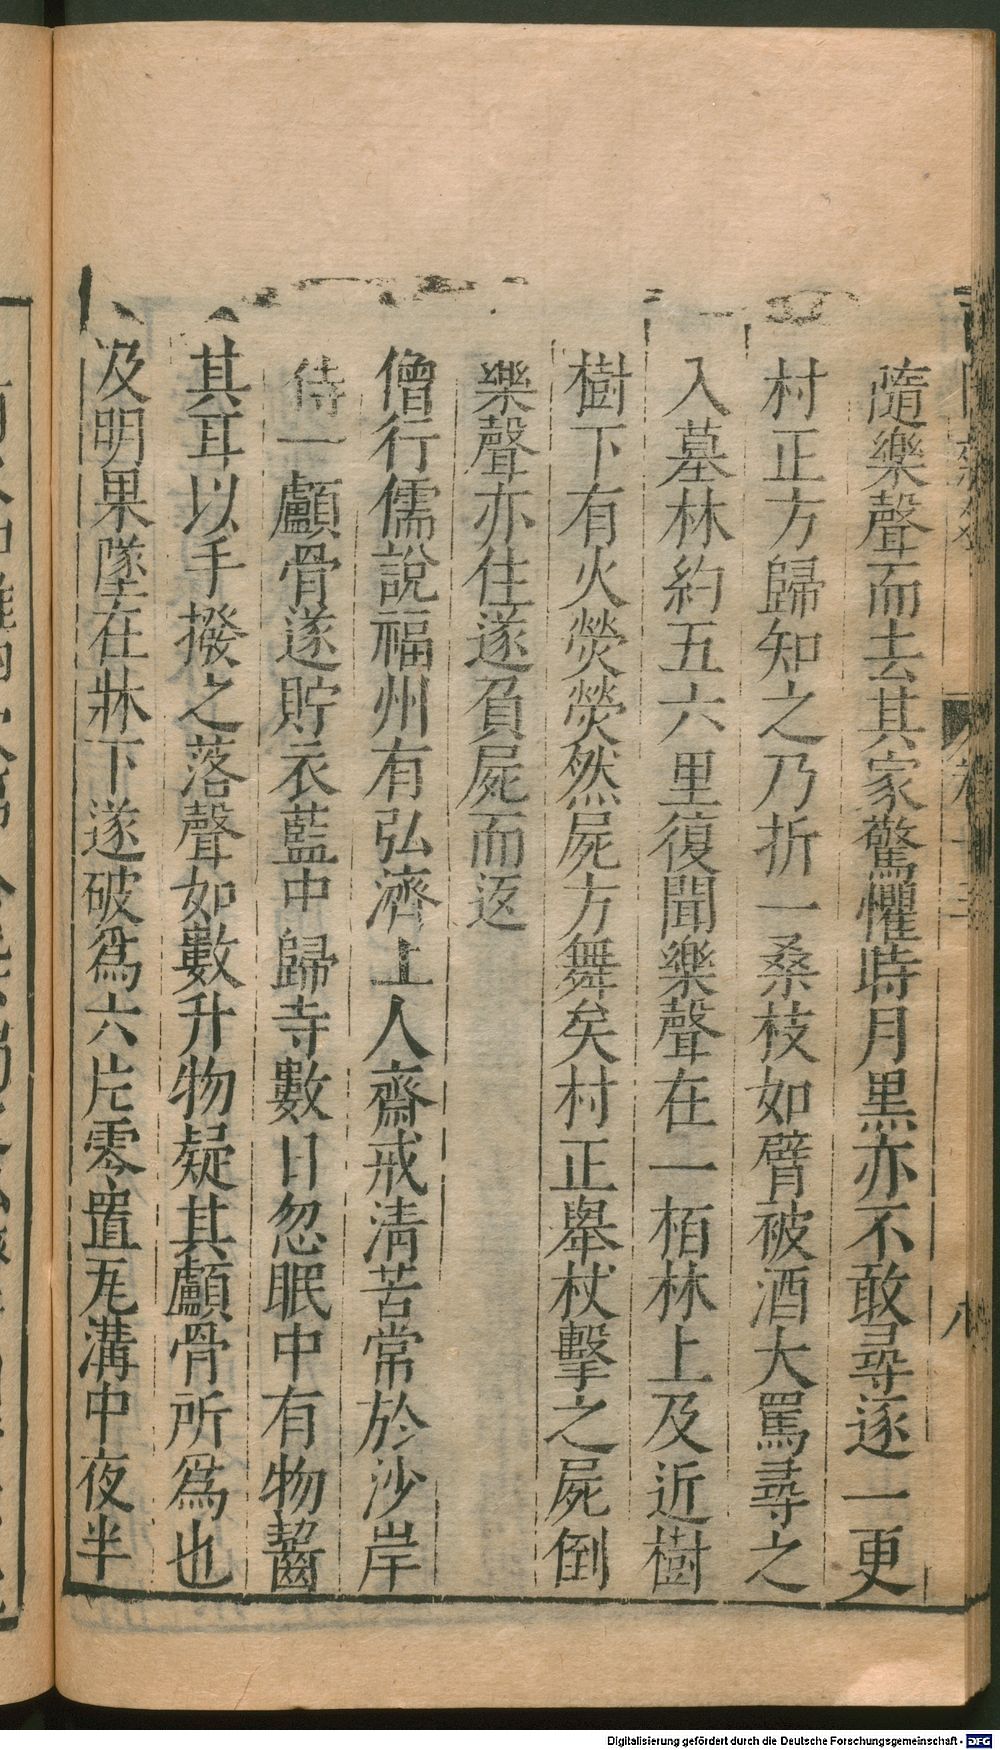 隨樂聲而去其家驚懼時月黑亦不敢尋逐一更
村正方歸知之乃折一桑枝如臂被酒大罵尋之
入墓林約五六里復聞樂聲在一栢林上及近樹
樹下有火熒熒然屍方舞矣村正舉杖擊之屍倒
樂聲亦住遂負屍而返
僧行儒說福州有弘濟上人齋戒清苦常於沙岸
侍一顱骨遂貯衣藍中歸寺數日忽眠中有物齧
其耳以手撥之落聲如數升物疑其顱骨所爲也
及明果墜在牀下遂破爲六片零置瓦溝中夜半
八
Digitalisierung gefördert durch die Deutsche Forschungsgemeinschaft - DFG